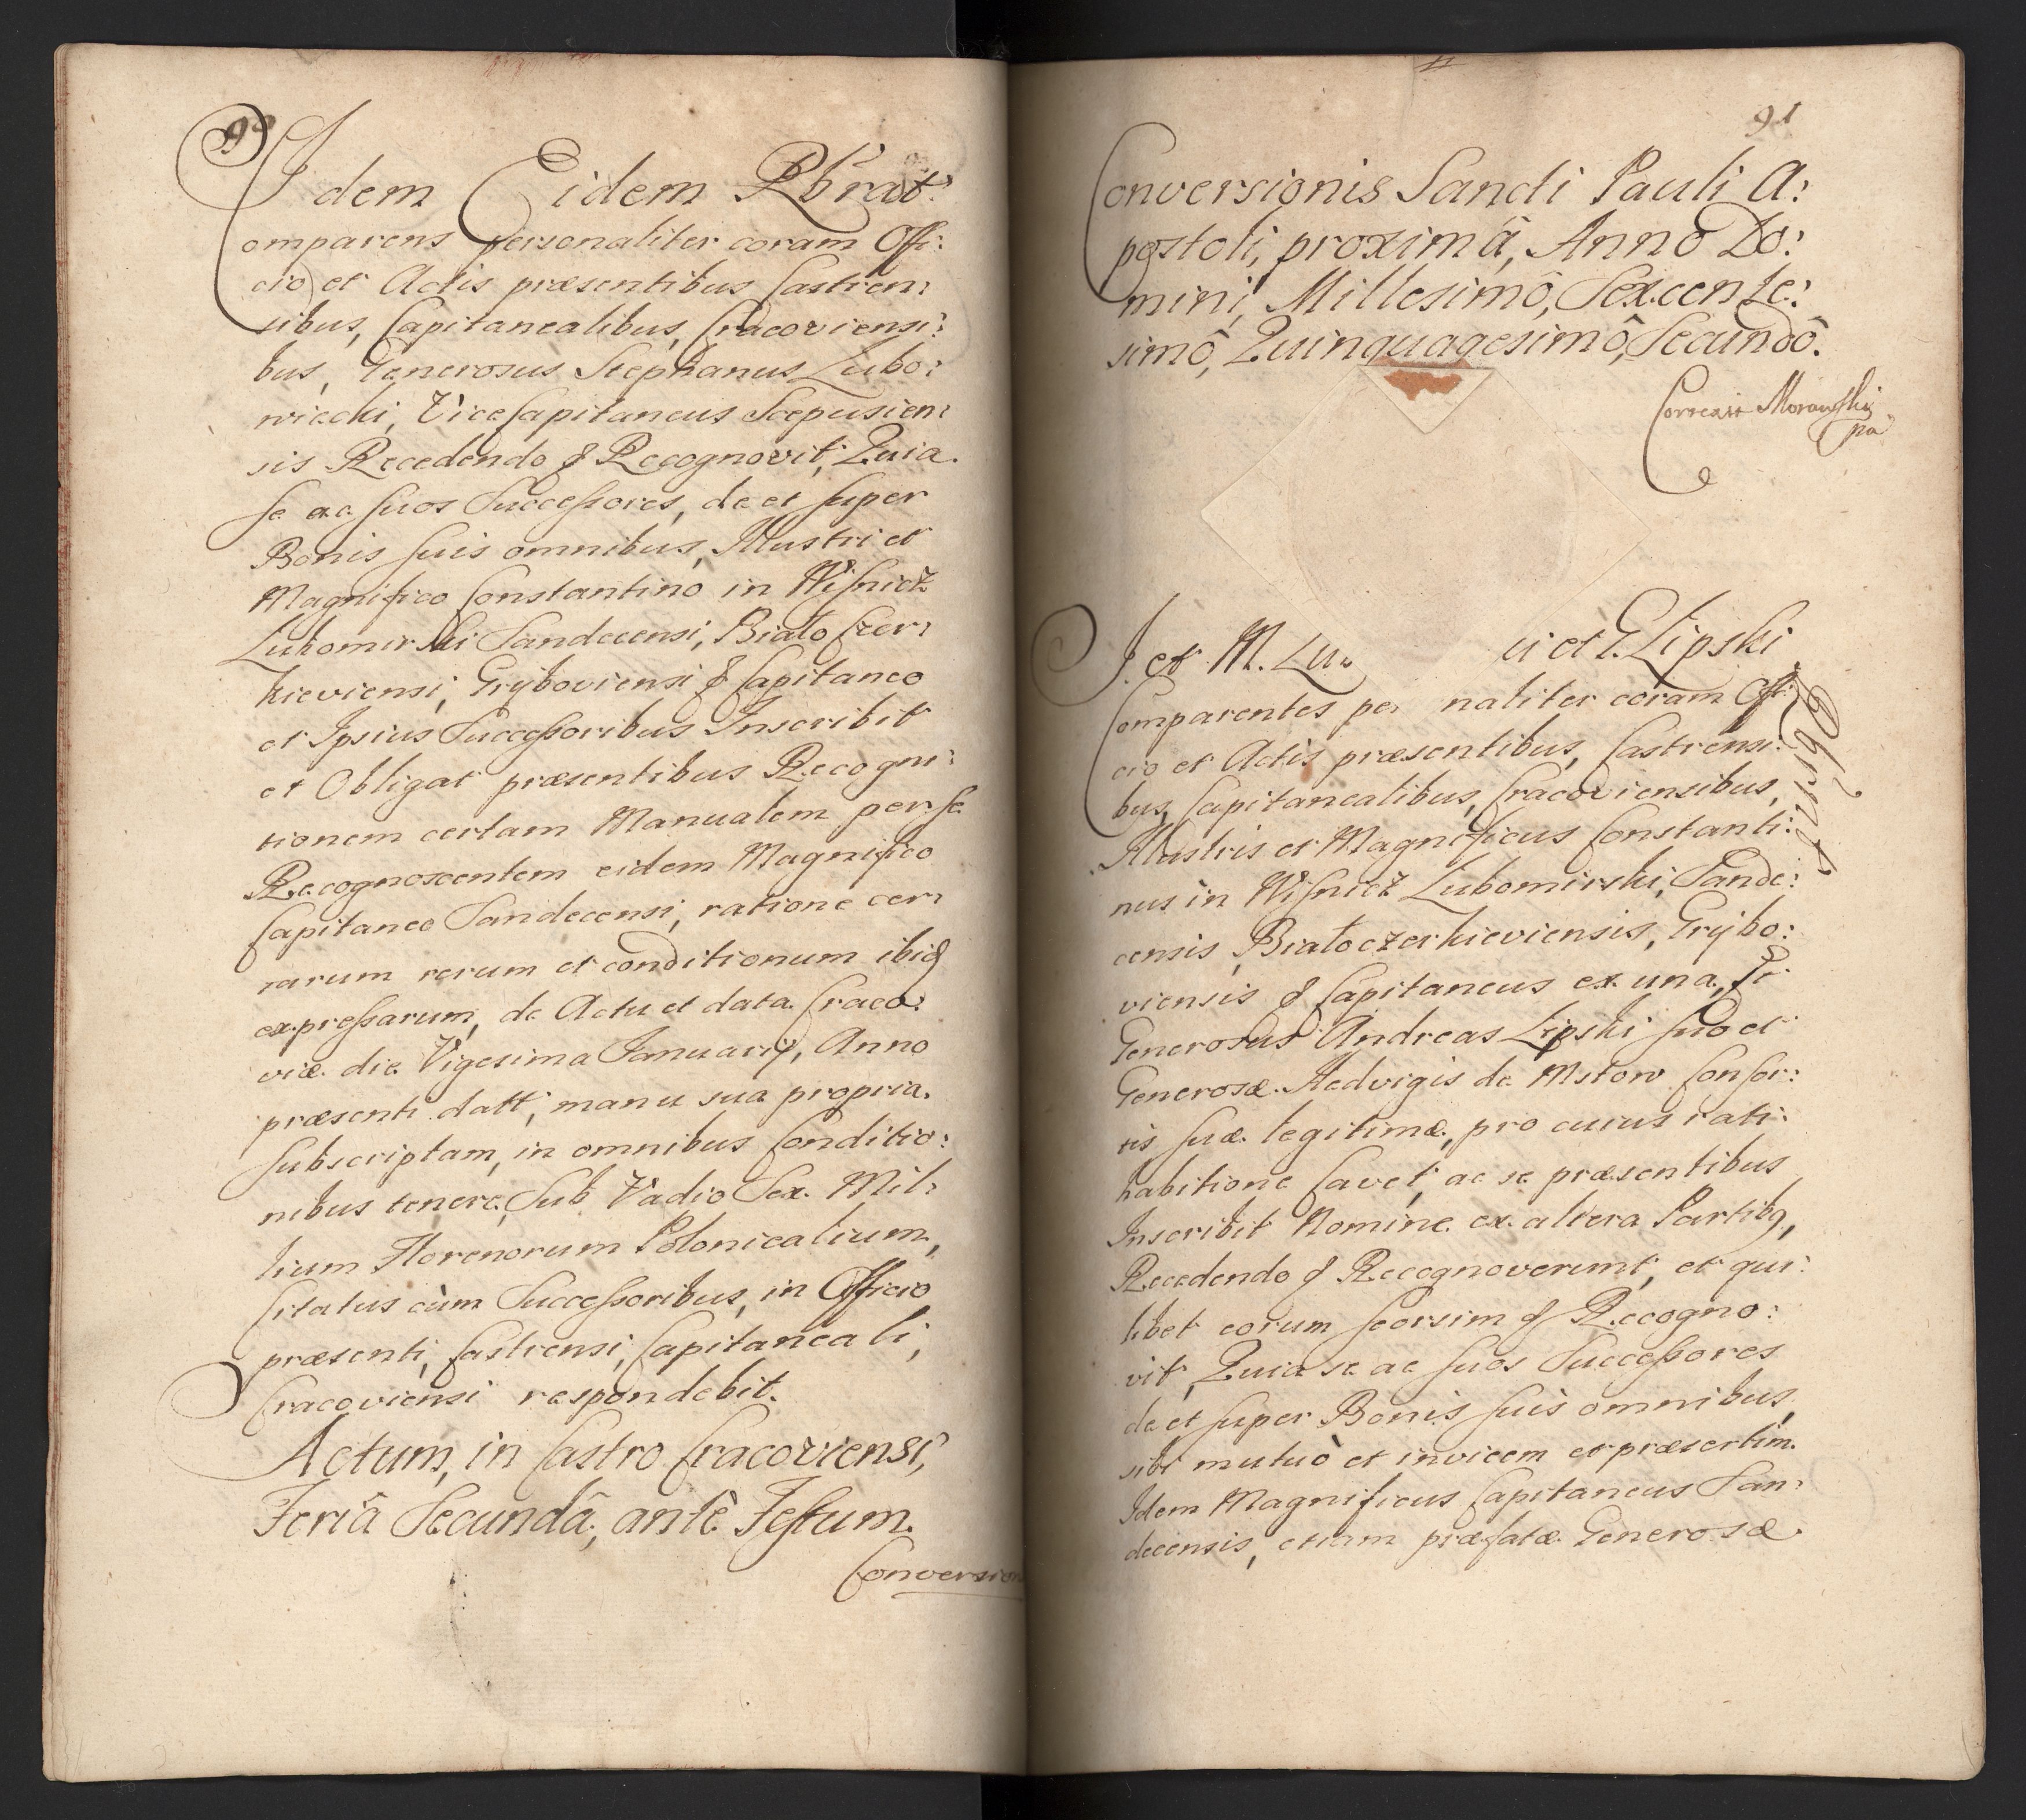 90
Idem Eidem Rbrat:
Comparens personaliter coram Offi:
cio et Actis præsentibus Castren:
sibus, Capitanealibus, Cracoviensi:
bus, Generosus Stephanus Lubo:
wiecki, ViceCapitaneus Scepusien:
sis Recedendo & Recognovit, Quia
se ac suos Successores, de et super
Bonis suis omnibus, Illustri et
Magnifico Constantino in Wisnicz
Lubomirski Sandecensi, Biało Czer:
kieviensi, Gryboviensi & Capitaneo
et Ipsius Successoribus Inscribit
et Obligat præsentibus Recogni:
tionem certam Manualem per se
Recognoscentem eidem Magnifico
Capitaneo Sandecensi, ratione cer:
tarum rerum et conditionum ibid
expressarum, de Actu et data Craco:
viæ die Vigesima Januarij, Anno
præsenti datt, manu sua propria
subscriptam, in omnibus Conditio:
nibus tenere, Sub Vadio Sex Mil:
lium Florenorum Polonicalium,
Citatus cùm Successoribus, in Officio
præsenti, Castrensi, Capitaneali,
Cracoviensi respondebit.
Actum, in Castro Cracoviensi,
Feriâ Secundâ, antè Festum
Conversion
91
Conversionis Sancti Pauli A:
postoli, proximâ, Anno Do:
mini, Millesimô, Sexcente:
simô, Quinquagesimô, Secundô.
Correxit Morawski
mp
I. et M. Lu
ii et G. Lipski
Rbrat
Comparentes per naliter coram Offi:
cio et Actis præsentibus, Castrensi:
bus, Capitanealibus, Cracoviensibus,
Illustris et Magnificus Constanti:
nus in Wisnicz Lubomirski, Sande:
censis, Białoczerkieviensis, Grybo:
viensis & Capitaneus ex una, Et
Generosus Andreas Lipski suo et
Generosæ Hedvigis de Mstow Consor:
tis suæ legitimæ, pro cuius rati:
habitione Cavet, ac se præsentibus
Inscribit Nomine ex altera Partibq,
Recedendo & Recognoverunt, et qui:
libet eorum seorsim & Recogno:
vit, Quia se ac suos Successores
de et super Bonis suis omnibus,
sibi mutuò et invicem et præsertim
Idem Magnificus Capitaneus San:
decensis, etiam præfatæ Generosæ